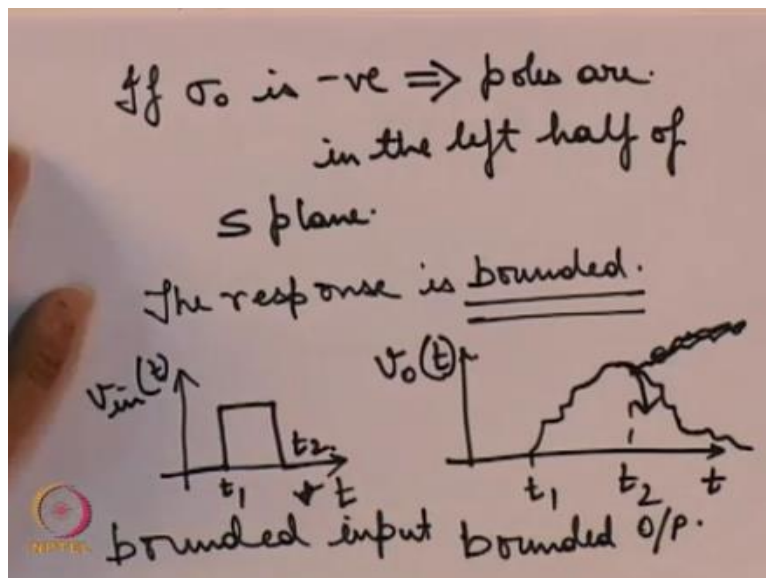 If σ₀ is -ve ⇒ poles are.
in the left half of
S plane.
The response is bounded.
v_in(t)
t₁ t₂ t
v₀(t)
t₁ t₂ t
NPTEL
bounded input bounded O/P.